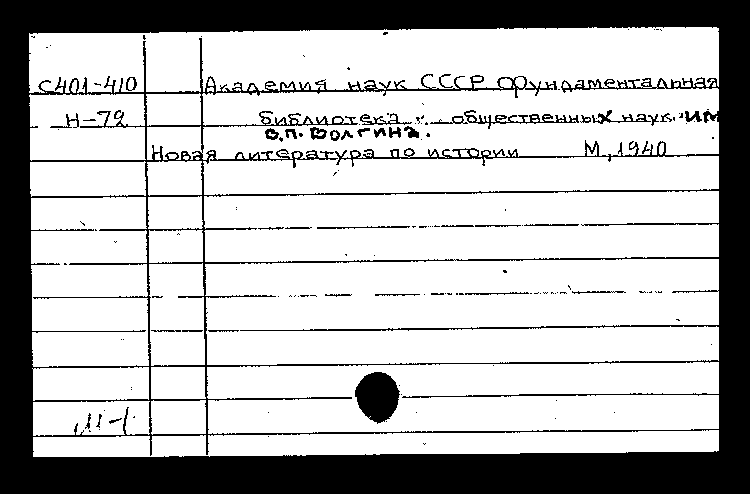 С401-410 Академия наук СССР Фундаментальная
Н-72 библиотека общественных наук им
В.П. Волгина.
Новая литература по истории М., 1940